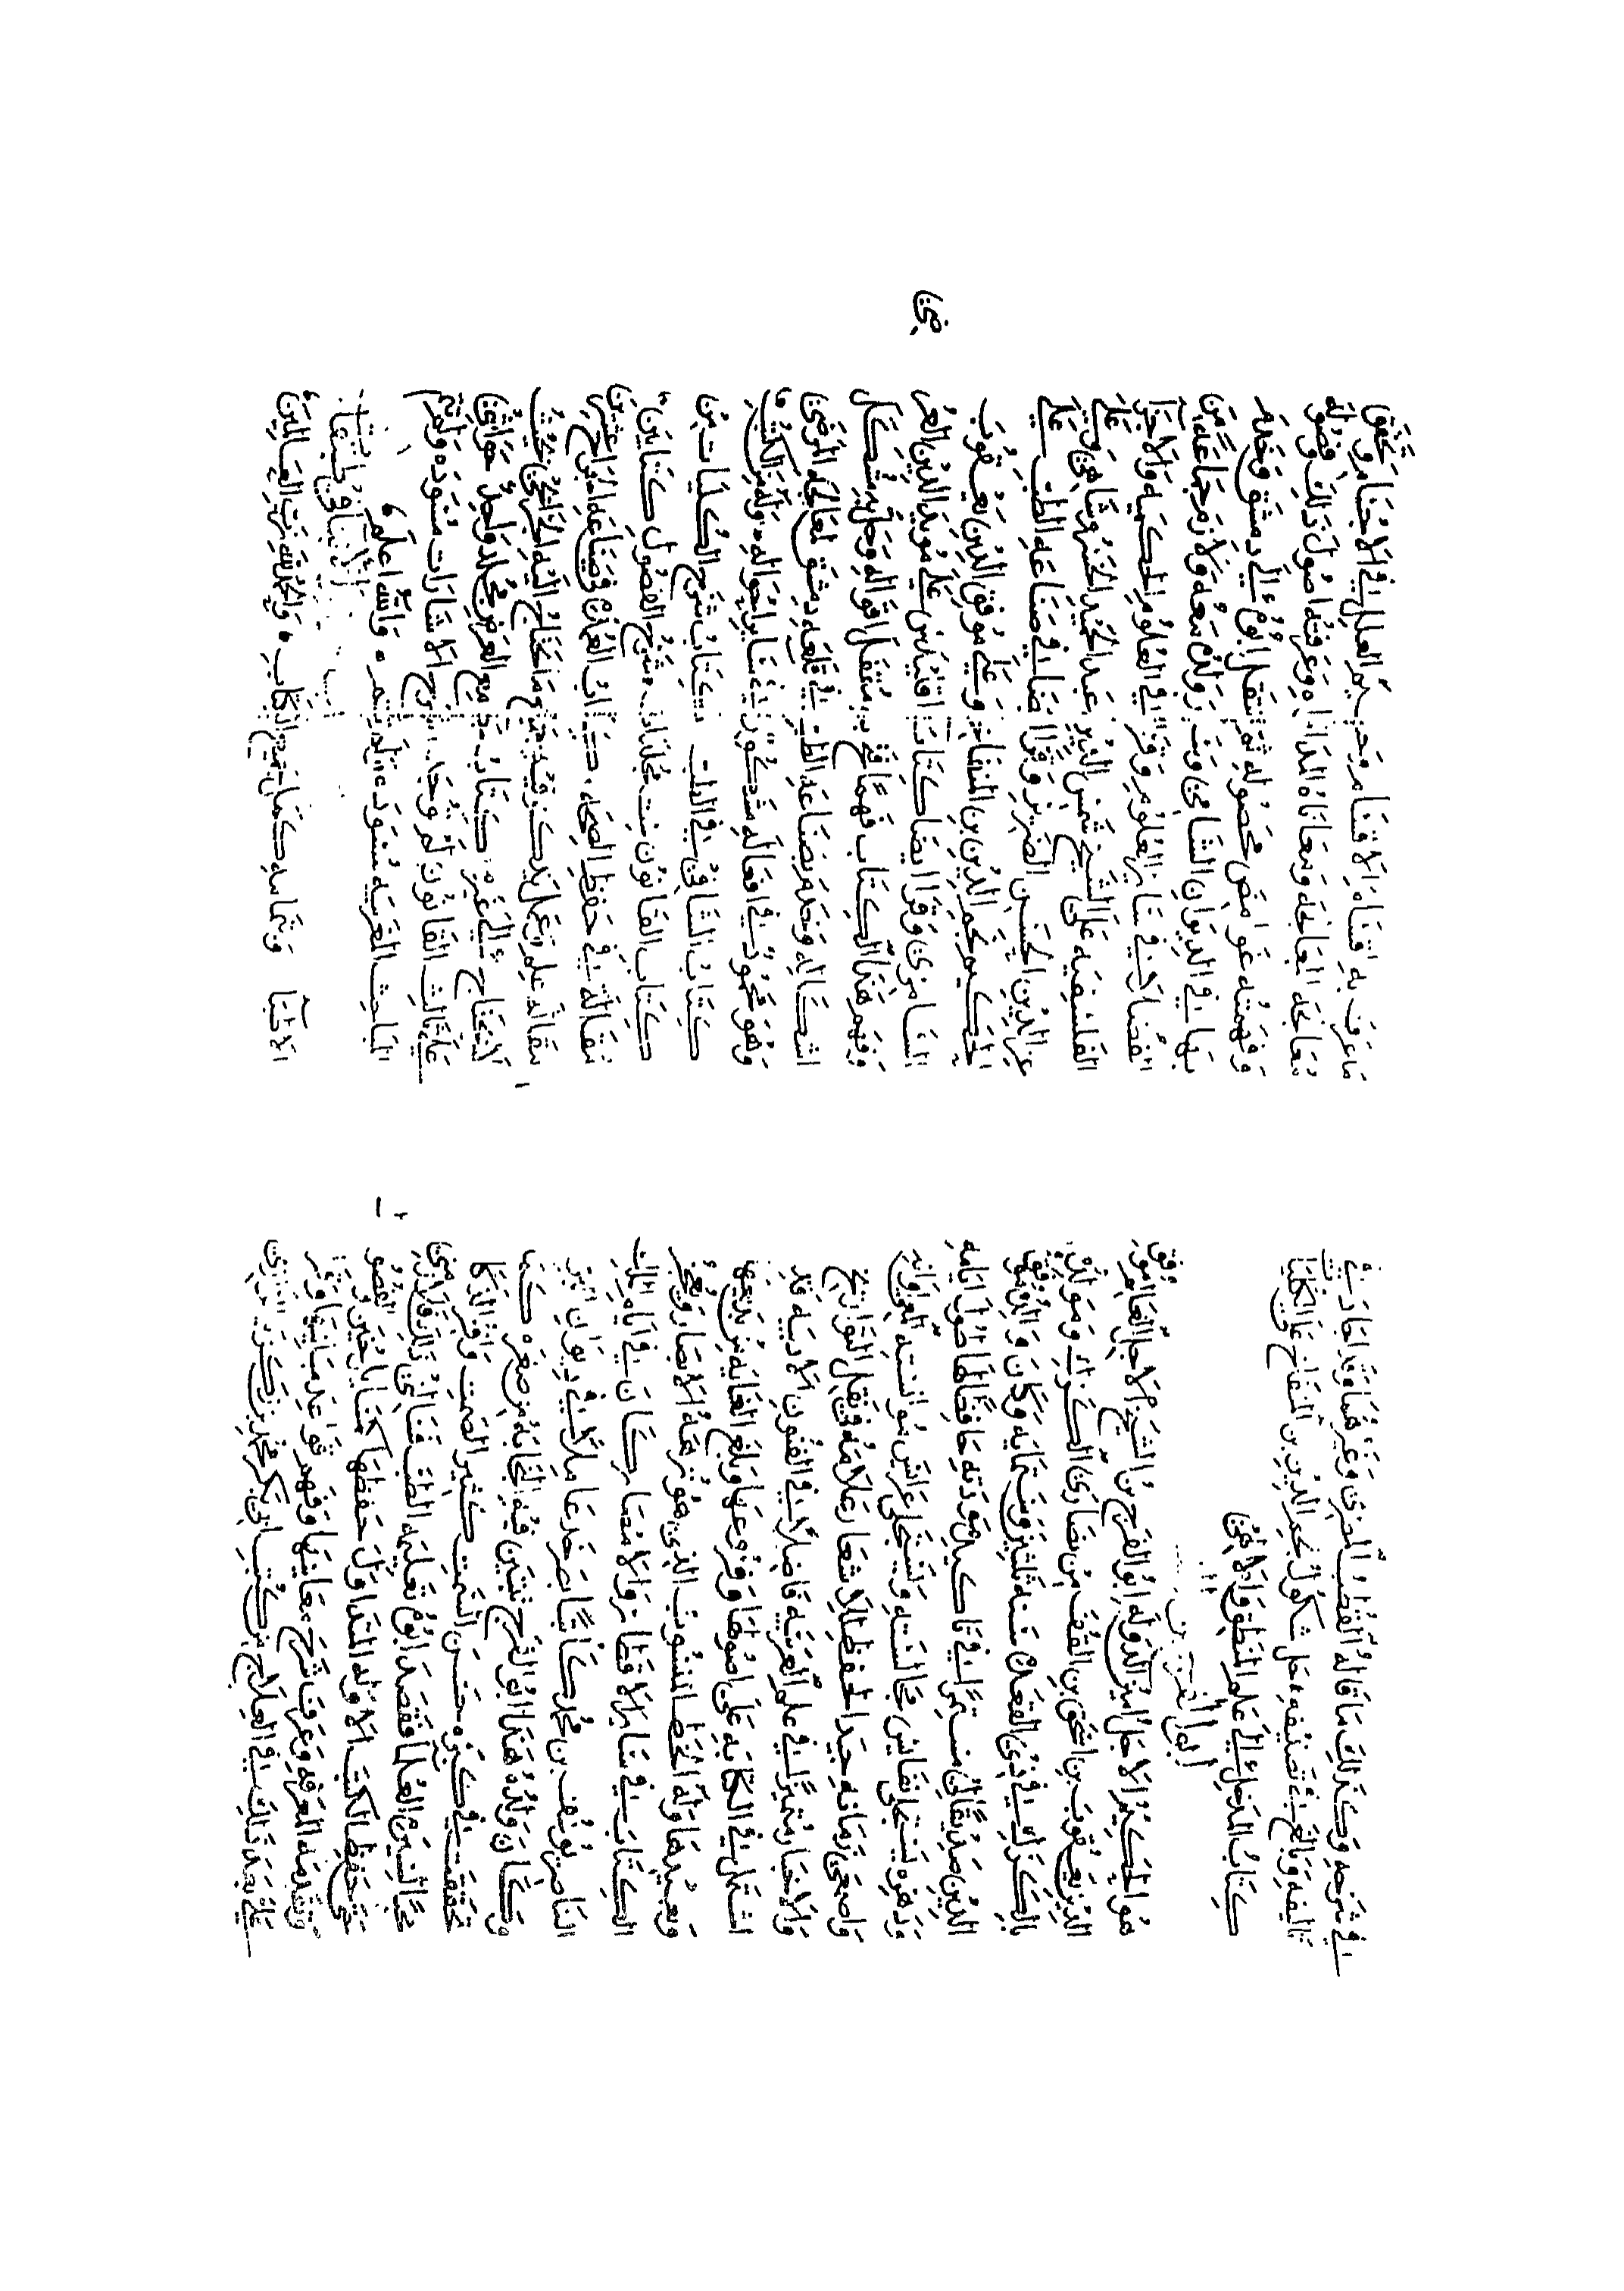 في شرحه وكذلك ما قاله القطب المصري وغيرهما وقد اجاد في
تاليفه وبالغ في تصنيفه حل شكوك نجم الدين بن المنفاخ على الكليات
كتاب المدخل الى علم المنطق والالهي
ابو الفرج بن
هو الحكيم الاجل امين الدولة ابو الفرج بن الشيخ الاجل العالم موفق
الدين يعقوب بن اسحق بن القف من نصارى الكرك ومولده
بالكرك في ذي القعدة سنة ثلثين وستماية وكان والده موفق
الدين صديقا لي مستمرا في تاكيد مودته حافظا لها طول ايامه
ودهره تستحلى نفايس مجالسته وتستجلى عرايس مؤانسته المعي اوانه
واصمعي زمانه جيد الحفظ للاشعار علامة في نقل التواريخ
والاخبار متميزا في علم العربية فاضلا في الفنون الادبية قد
اشتمل في الكتابة على اصولها وفروعها وبلغ الغاية من بديعها
وبعيدها وله الخط المنسوب الذي هو نزهة الابصار ويعجز
الكتاب في ساير الاقطار والامصار كان في ايام الملك
الناصر يوسف بن محمد كاتبا بصرخد عاملا في ديوان البر
وكان ولده هذا ابو الفرج تتبين فيه النجابة من صغره كما
تحققت في كبره حسن السمت كثير الصمت وافر الذكا
محبا لسيرة العلما فقصد ابوه تعليمه الطب فسالني ذلك فلازمني
حتى حفظ الكتب الاولة المتداول حفظها كمسايل حنين والفصول
وتقدمة المعرفة وعرف شرح معانيها وفهم قواعد مبانيها وقرا
علي بعد ذلك في العلاج من كتب ابي بكر محمد بن زكريا الرازي
ما عرف به اقسام الاسقام وجسيم العلل في الاجسام وتحقق
معالجة المعالجة ومعاناة المداواة وعرفته اصول ذلك وفصوله
وفهمته غوامضه ومحصوله ثم انتقل ابوه الى دمشق وخدم
بها في الديوان السامي وسار ولده معه ولازم جماعة من
الفضلا فقرا في ساير العلوم وقرا في العلوم الحكمية والاجزا
الفلسفية على الشيخ شمس الدين عبد الحميد الخسروشاهي وعلى
عز الدين الحسن الضرير وقرا ايضا في صناعة الطب على
الحكيم نجم الدين بن المنفاخ وعلى موفق الدين يعقوب
السامري وقرا ايضا كتاب اقليدس على مؤيد الدين العرضي
وفهم هذا الكتاب فهما فتح به مقفل اقواله وحل به مشكل
اشكاله وخدم بصناعة الطب في قلعة دمشق لمعالجة المرضى
وهو محمود في افعاله مشكور في ساير احواله وله من الكتب
كتاب الشافي في الطب كتاب شرح الكليات من
كتاب القانون ست مجلدات شرح الفصول كتابين
مقالة في حفظ الصحة كتاب العمدة في صناعة الجراح عشرين
مقالة علم وعمل يذكر فيه جميع ما يحتاج اليه الجرايحي بحيث
لا يحتاج الى غيره كتاب جامع الغرض مجلد واحد حواشي
على ثالث القانون لم يوجد شرح الاشارات مسودة ولم يتم
المباحث المغربية مسودة ولم يتم والله اعلم
الانبا في طبقات
الاطبا وبتمامه كمل جميع الكتاب والحمد لله رب العالمين